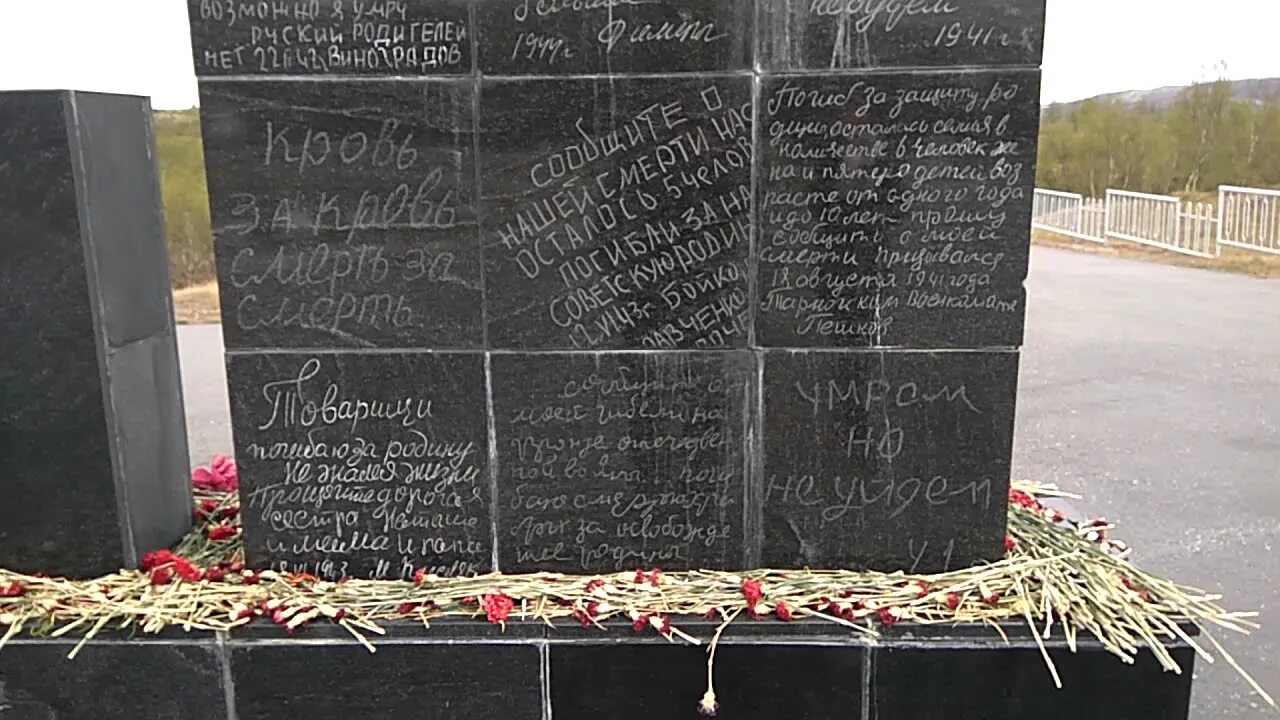 ВОЗМОЖНО Я УМРУ
РУСКИЙ РОДИТЕЛЕЙ
НЕТ 22 42 ВИНОГРАДОВ
1944г
не будем
1941г
Кровь
за кровь
смерть за
смерть
СООБЩИТЕ О
НАШЕЙ СМЕРТИ НАС
ОСТАЛОСЬ 5 ЧЕЛОВ
ПОГИБЛИ ЗА НА
СОВЕТСКУЮ РОДИН
БОЙКО
АВЧЕНКО
Погиб за защиту ро
дины осталась семья в
количестве 6 человек же
на и пятеро детей воз
расте от одного года
и до 10 лет прошу
сообщить о моей
смерти Призывался
18 августа 1941 года
военкомате
Пешков
Товарищи
погибаю за родину
Не жалея жизни
дорогая
сестра Наташа
и мама и папа
1943 М
сообщите о
моей гибели на
фронте отечествен
ной войны поги
баю смертью
за освобожде
ние родины
УМРЕМ
НО
НЕ УЙДЕМ